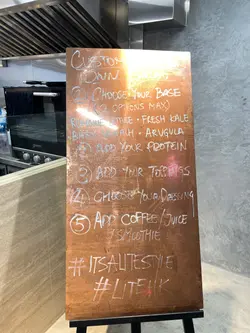 CUSTOM
OWN
① CHOOSE YOUR BASE
(2 OPTIONS MAX)
• FRESH KALE
BABY SPINACH • ARUGULA
② ADD YOUR PROTEIN
③ ADD YOUR TOPPINGS
④ CHOOSE YOUR DRESSING
⑤ ADD COFFEE/JUICE
/SMOOTHIE
#ITSALITESTYLE
#LITEHK